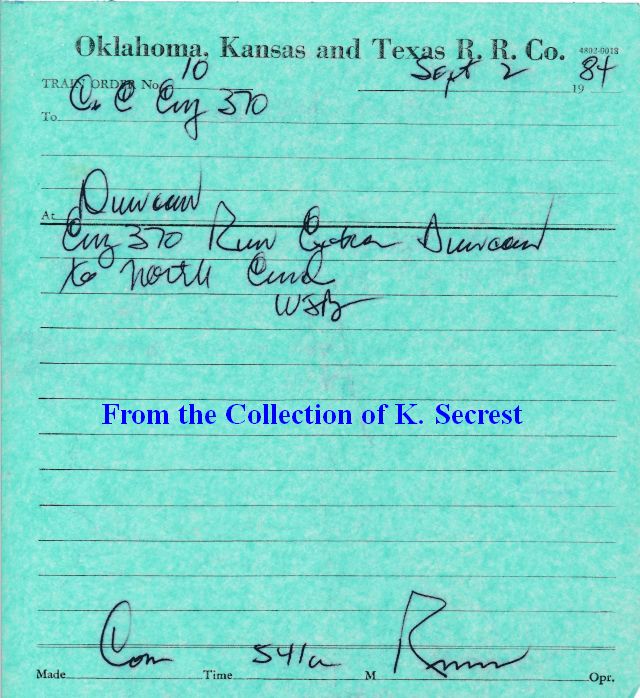 Oklahoma, Kansas and Texas R. R. Co. 4802-0018
TRAIN ORDER No. 10 Sept 2 1984
To C & C Eng 370
At Duncan
Eng 370 Run Extra Duncan
to North End
From the Collection of K. Secrest
Made Com Time 541a M Opr.